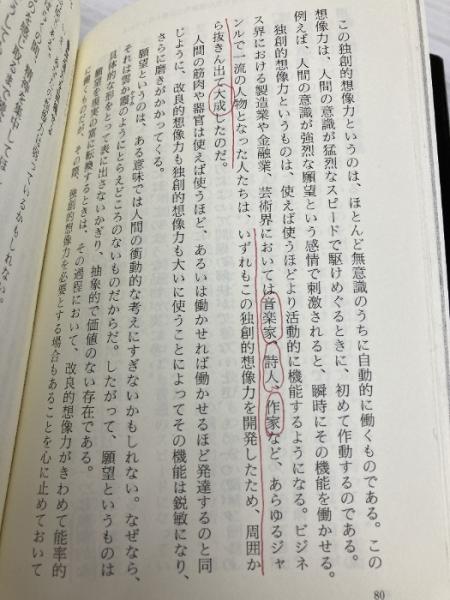 この独創的想像力というのは、ほとんど無意識のうちに自動的に働くものである。この
想像力は、人間の意識が猛烈なスピードで駆けめぐるときに、初めて作動するのである。
例えば、人間の意識が強烈な願望という感情で刺激されると、瞬時にその機能を働かせる。
独創的想像力というものは、使えば使うほどより活動的に機能するようになる。ビジネ
ス界における製造業や金融業、芸術界においては音楽家、詩人、作家など、あらゆるジャ
ンルで一流の人物となった人たちは、いずれもこの独創的想像力を開発したため、周囲か
ら抜きん出て大成したのだ。
人間の筋肉や器官は使えば使うほど、あるいは働かせれば働かせるほど発達するのと同
じように、改良的想像力も独創的想像力も大いに使うことによってその機能は鋭敏になり、
さらに磨きがかかってくる。
願望というのは、ある意味では人間の衝動的な考えにすぎないかもしれない。なぜなら、
それは雲か霞のようにとらえどころのないものだからだ。したがって、願望というものは
具体的な形をとって表に出さないかぎり、抽象的で価値のない存在である。
願望を現実の富に転換するときは、その過程において、改良的想像力がきわめて能率的
に働くものだが、その際、独創的想像力を必要とする場合もあることを心に止めておいて
80